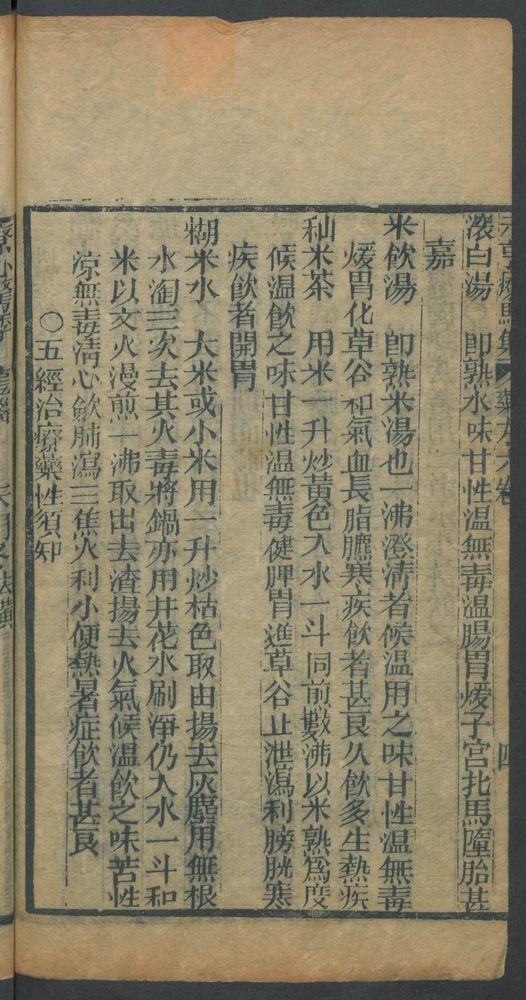 元亨療馬集 藥方六卷 四
滾白湯 卽熟水味甘性溫無毒溫腸胃煖子宮牝馬墮胎甚
嘉
米飲湯 卽熟米湯也一沸澄淸者候溫用之味甘性溫無毒
煖胃化草谷和氣血長脂臕寒疾飲者甚良久飲多生熱疾
秈米茶 用米一升炒黃色入水一斗同前數沸以米熟爲度
候溫飲之味甘性溫無毒健脾胃進草谷止泄瀉利膀胱寒
疾飲者開胃
糊米水 大米或小米用一升炒枯色取由揚去灰塵用無根
水淘三次去其火毒將鍋亦用井花水刷淨仍入水一斗和
米以文火漫煎一沸取出去渣揚去火氣候溫飲之味苦性
涼無毒淸心歛肺瀉三焦火利小便熱暑症飲者甚良
○五經治療藥性須知